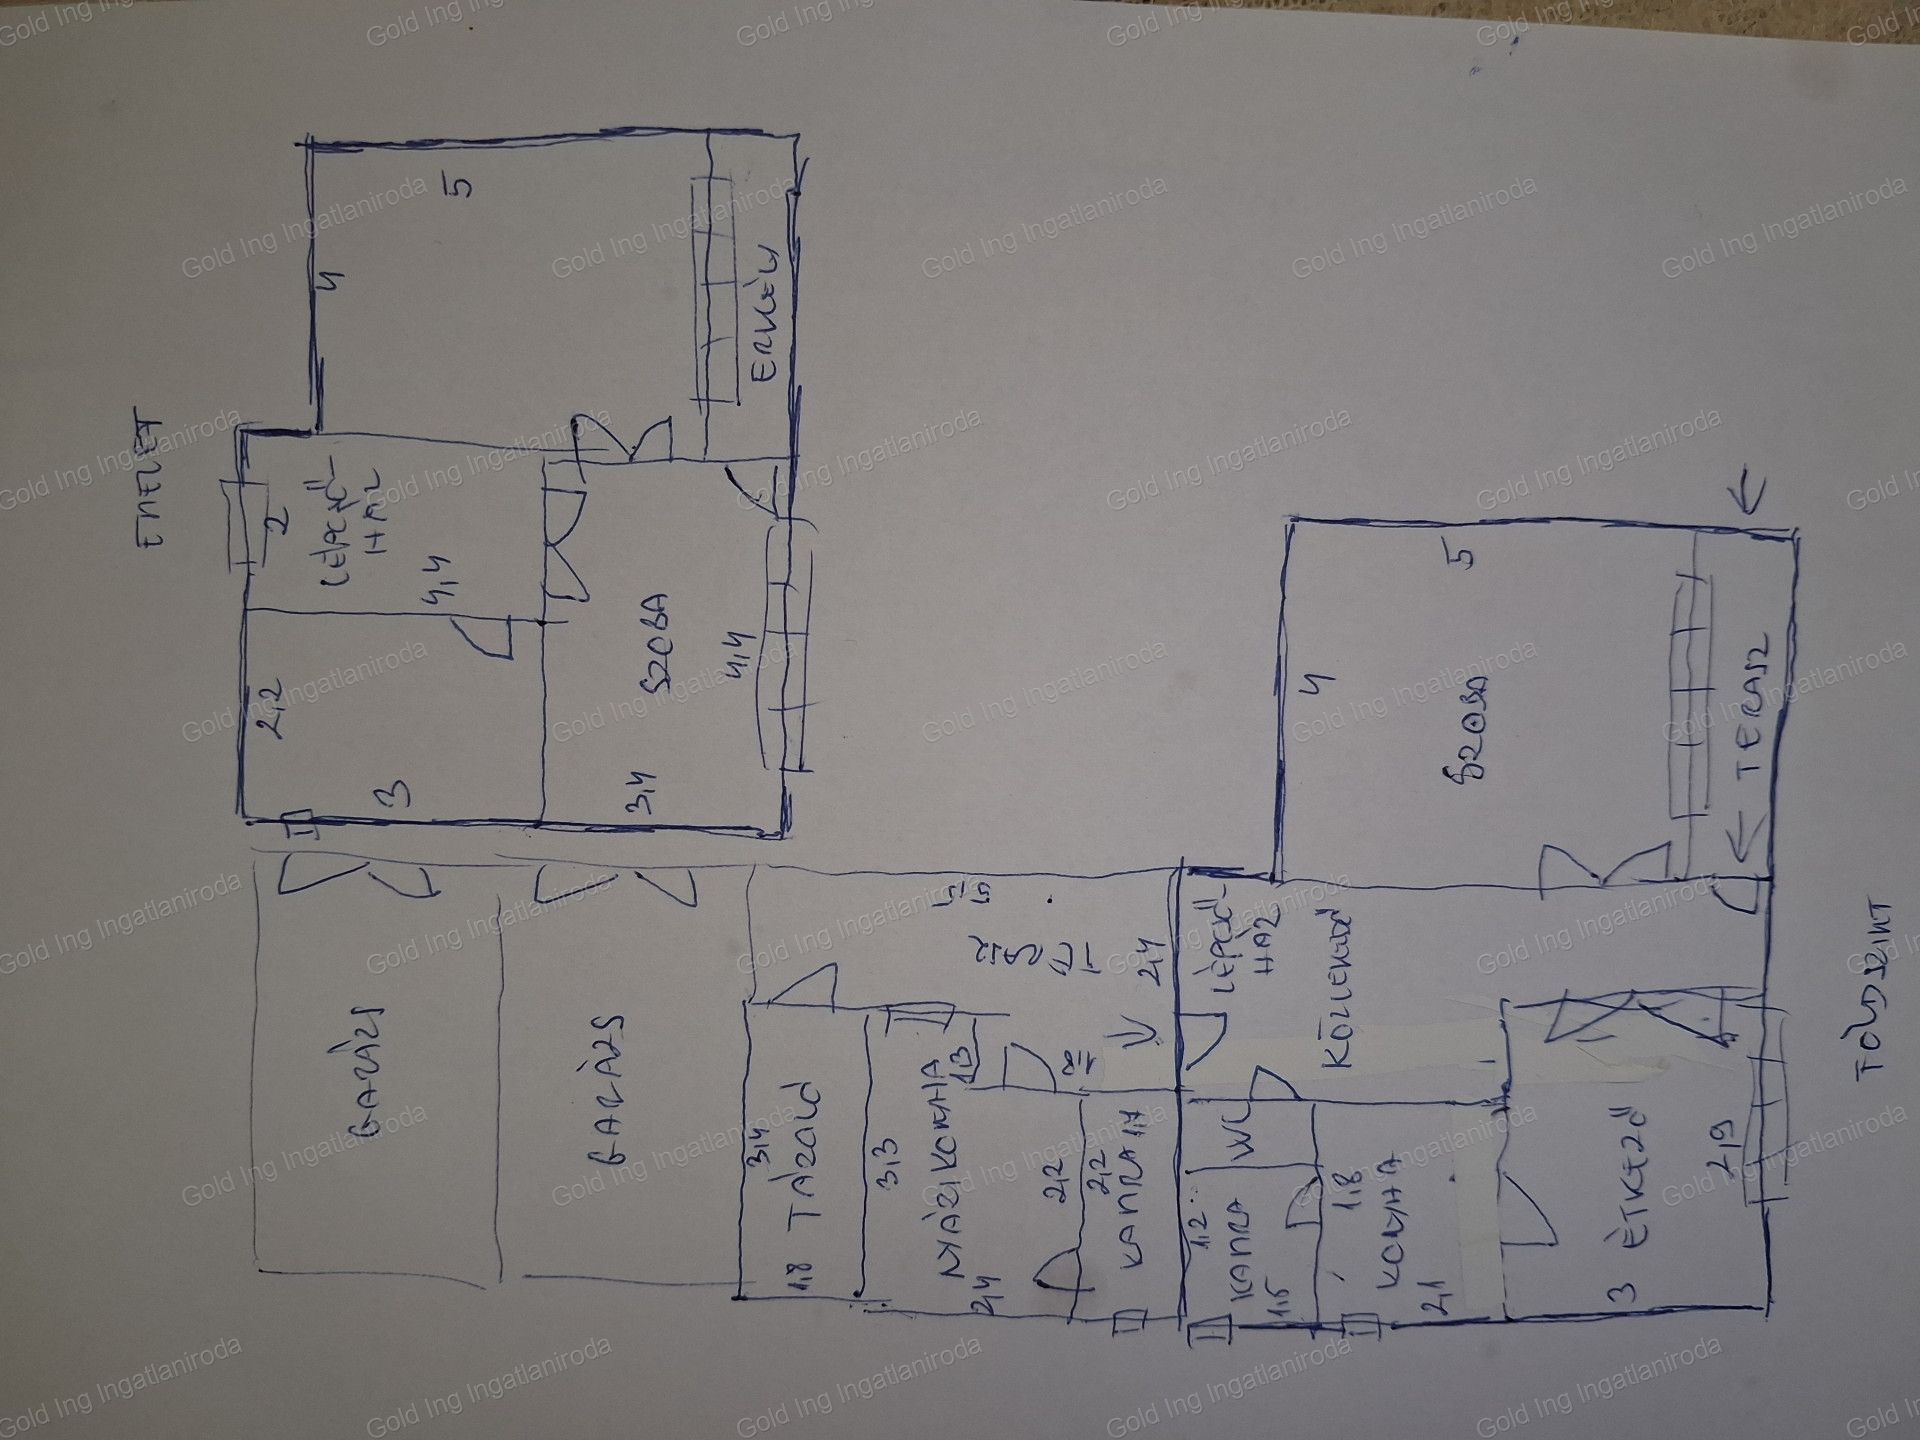 EMELET
4
5
2
LÉPCSŐ-
HÁZ
4,4
ERKÉLY
2,2
3
SZOBA
4,4
3,4
GARÁZS
GARÁZS
3,4
TÁROLÓ
1,8
3,3
NYÁRI KONYHA
1,3
2,4
2,2
2,2
KAMRA 1,7
5,5
2,4
LÉPCSŐ-
HÁZ
KÖZLEKEDŐ
WC
1,2
KAMRA
1,5
1,8
KONYHA
2,1
ÉTKEZŐ
2,9
3
4
5
SZOBA
TERASZ
FÖLDSZINT
Gold Ing Ingatlaniroda